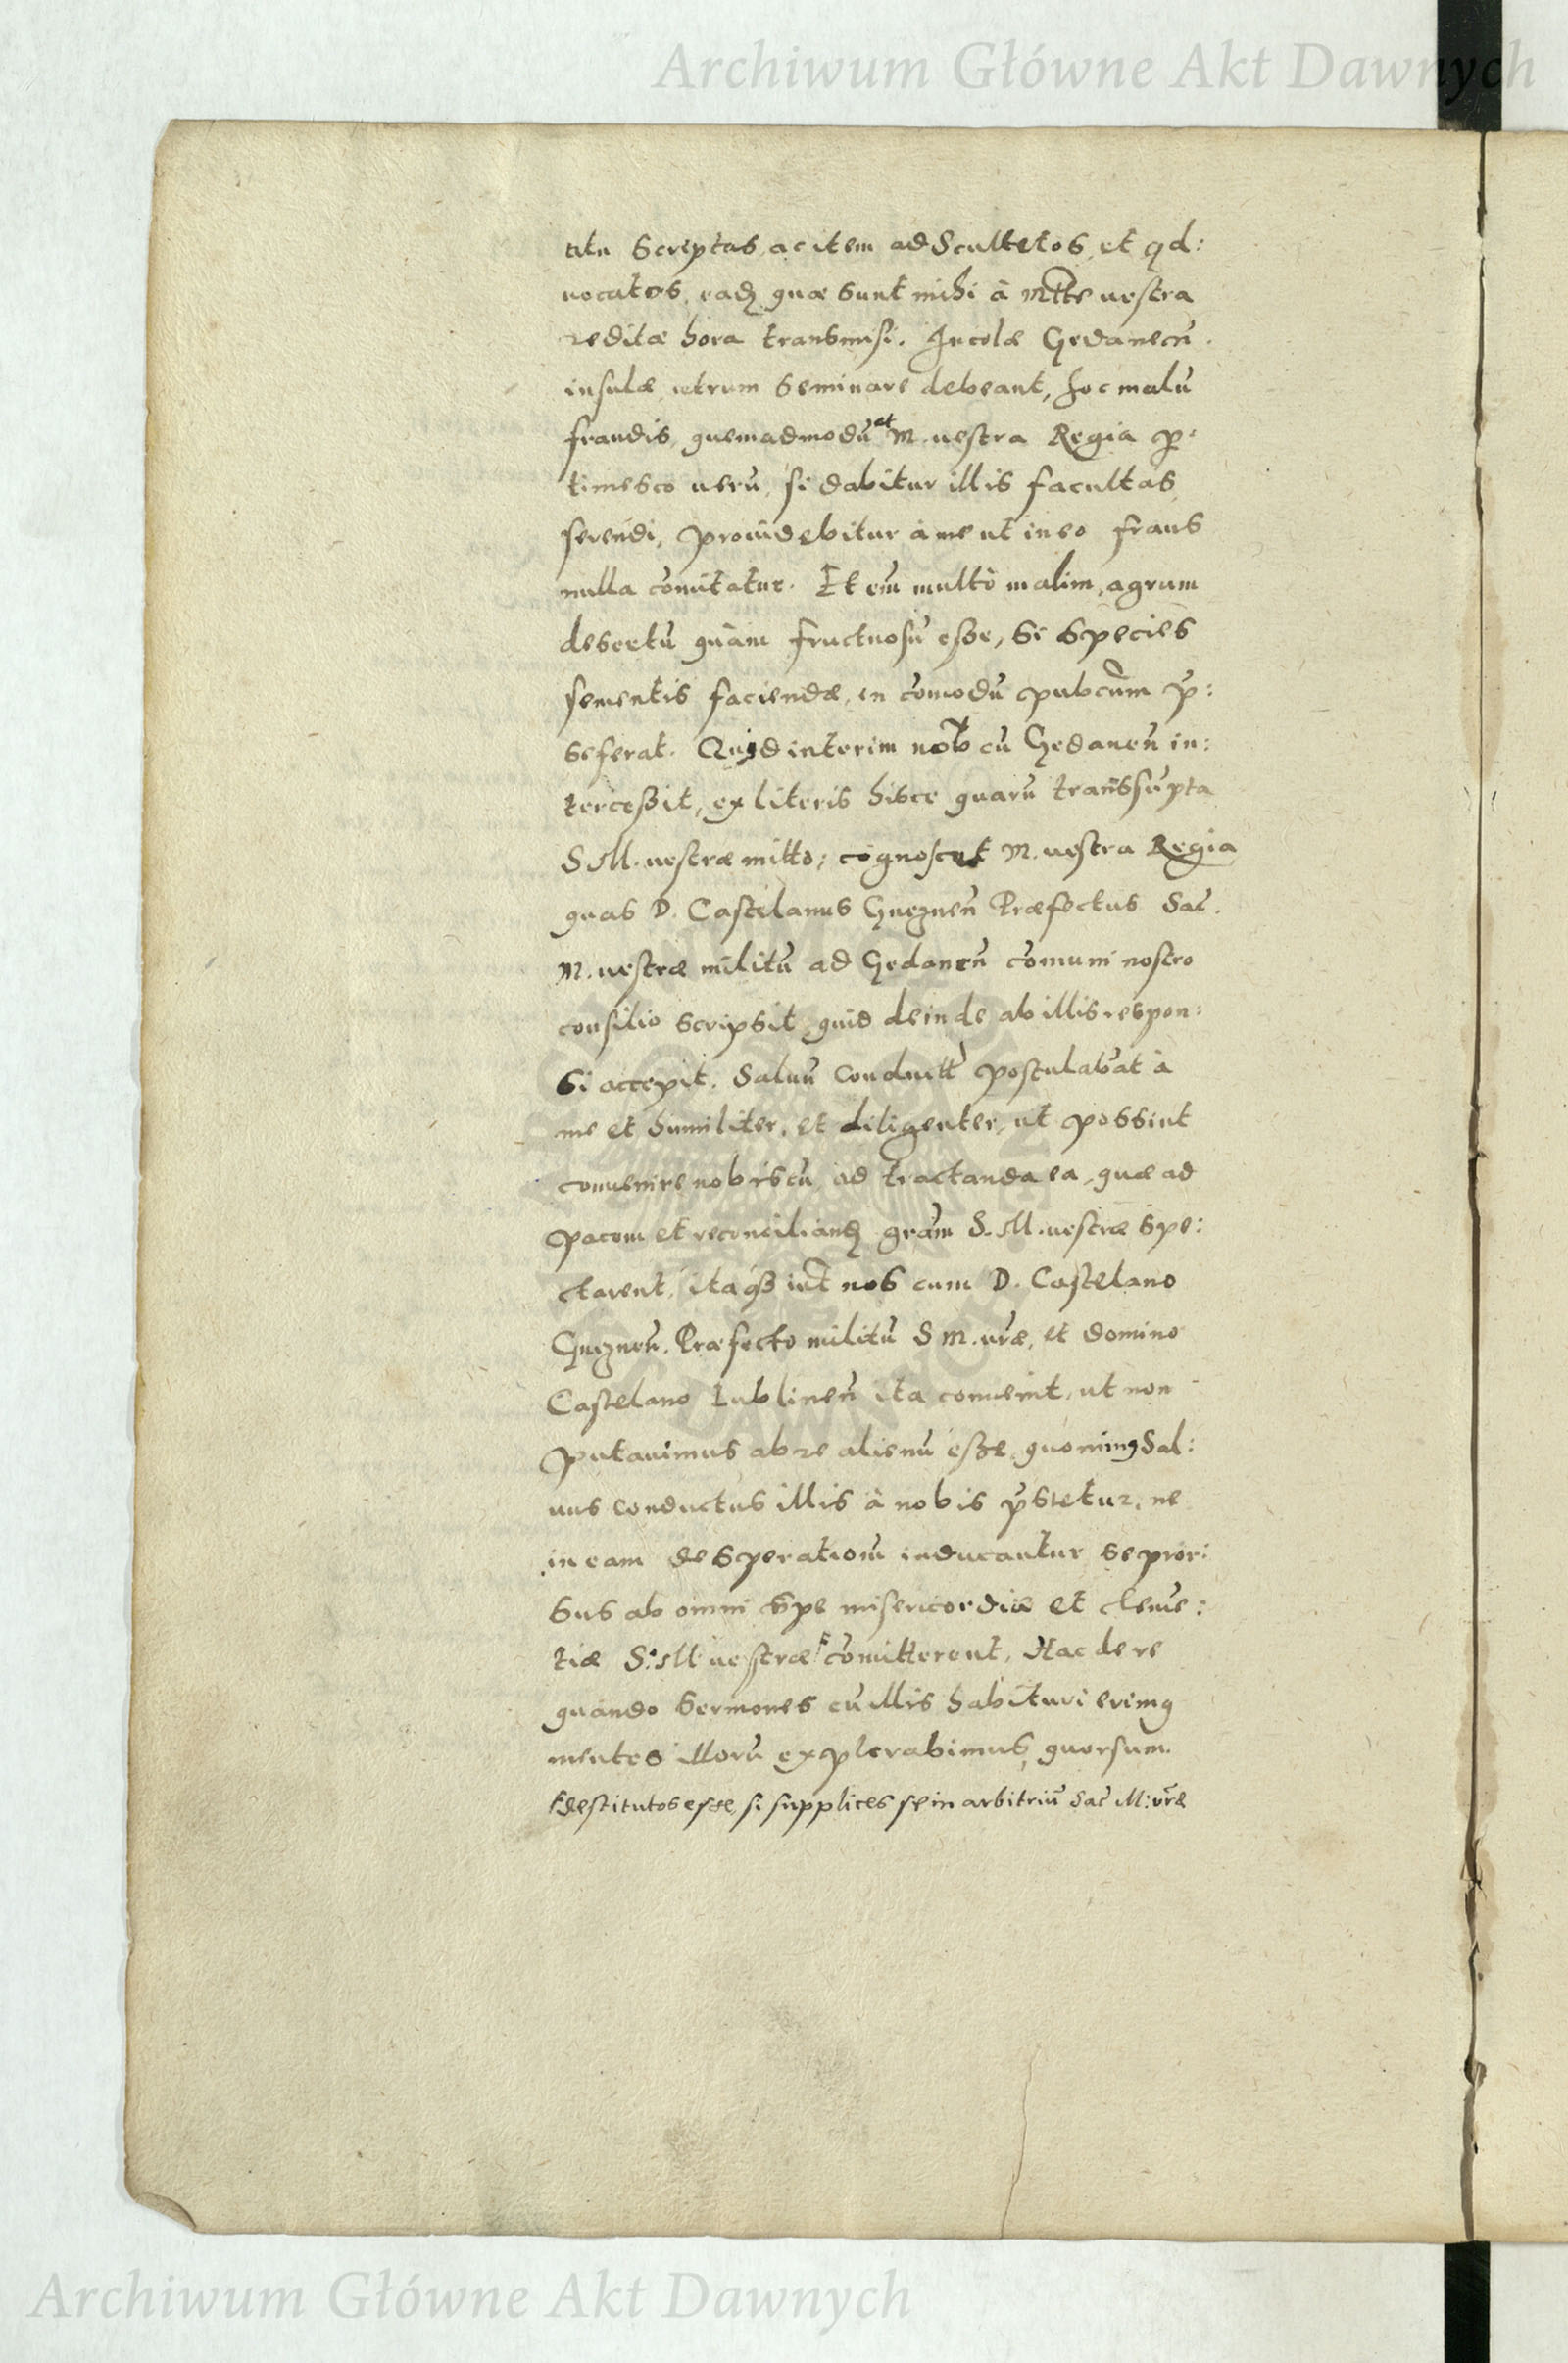 Archiwum Główne Akt Dawnych
scriptas, ac item ad Scultetos, et
uocatos, eadꝫ quæ sunt mihi à Mtte uestra
reditæ hora transmisi. Incolæ Gedaneñ.
insulæ, utrum seminare debeant, hoc malũ
fraudis, quemadmodũ et M. uestra Regia p̱:
timesco uerũ, si dabitur illis facultas
serendi, prouidebitur à me ut in eo fraus
nulla com̃itatur. Et em̃ multò malim, agrum
desertũ quàm fructuosũ esse, si species
sementis faciendæ, in com̃odũ pubcũm p̃:
seferat. Quid interim nob cũ Gedaneñ in:
terceßit, ex literis hisce quarũ transsũpta
S M. uestræ mitto; cognoscet M. uestra Regia
quas D. Castelanus Gnezneñ Præfectus Sac̃.
M. uestræ militũ ad Gedaneñ com̃uni nostro
consilio scripsit, quid deinde ab illis respon:
si accepit. Saluũ conductũ postulabãt à
me et humiliter, et diligenter, ut possint
conuenire nobiscũ, ad tractanda ea, quæ ad
pacem et reconciliandꝫ grãm S. M. uestræ spe:
ctarent, itaqꝫ int̃ nos cum D. Castelano
Gnezneñ. Præfecto militũ S M. uræ, et domino
Castelano Lublineñ ita conuenit, ut non
putauimus ab re alienũ eße, quominꝰ Sal:
uus conductus illis à nobis p̃stetur, ne
in eam desperatiom̃ inducantur se pror:
sus ab omni spe misericordiæ et cleme:
tiæ S. M uestræ com̃itterent, Hac de re
quando sermones cũ illis habituri erimꝰ
mentes illorũ explorabimus, quorsum.
destitutos esse, si supplices se in arbitriũ Sac̃ M: uræ
Archiwum Główne Akt Dawnych